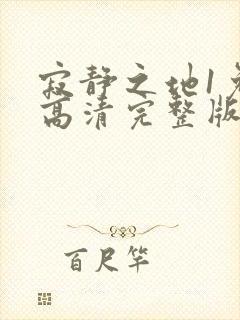 寂静之地1免
高清完整版
百尺竿